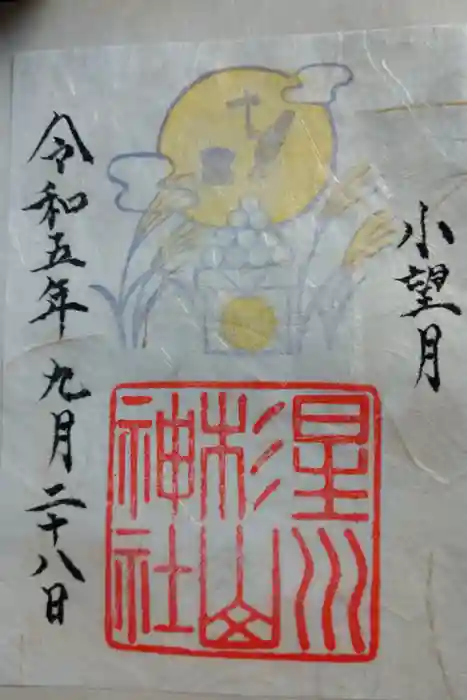 小望月
星川
杉山
神社
令和五年 九月二十八日